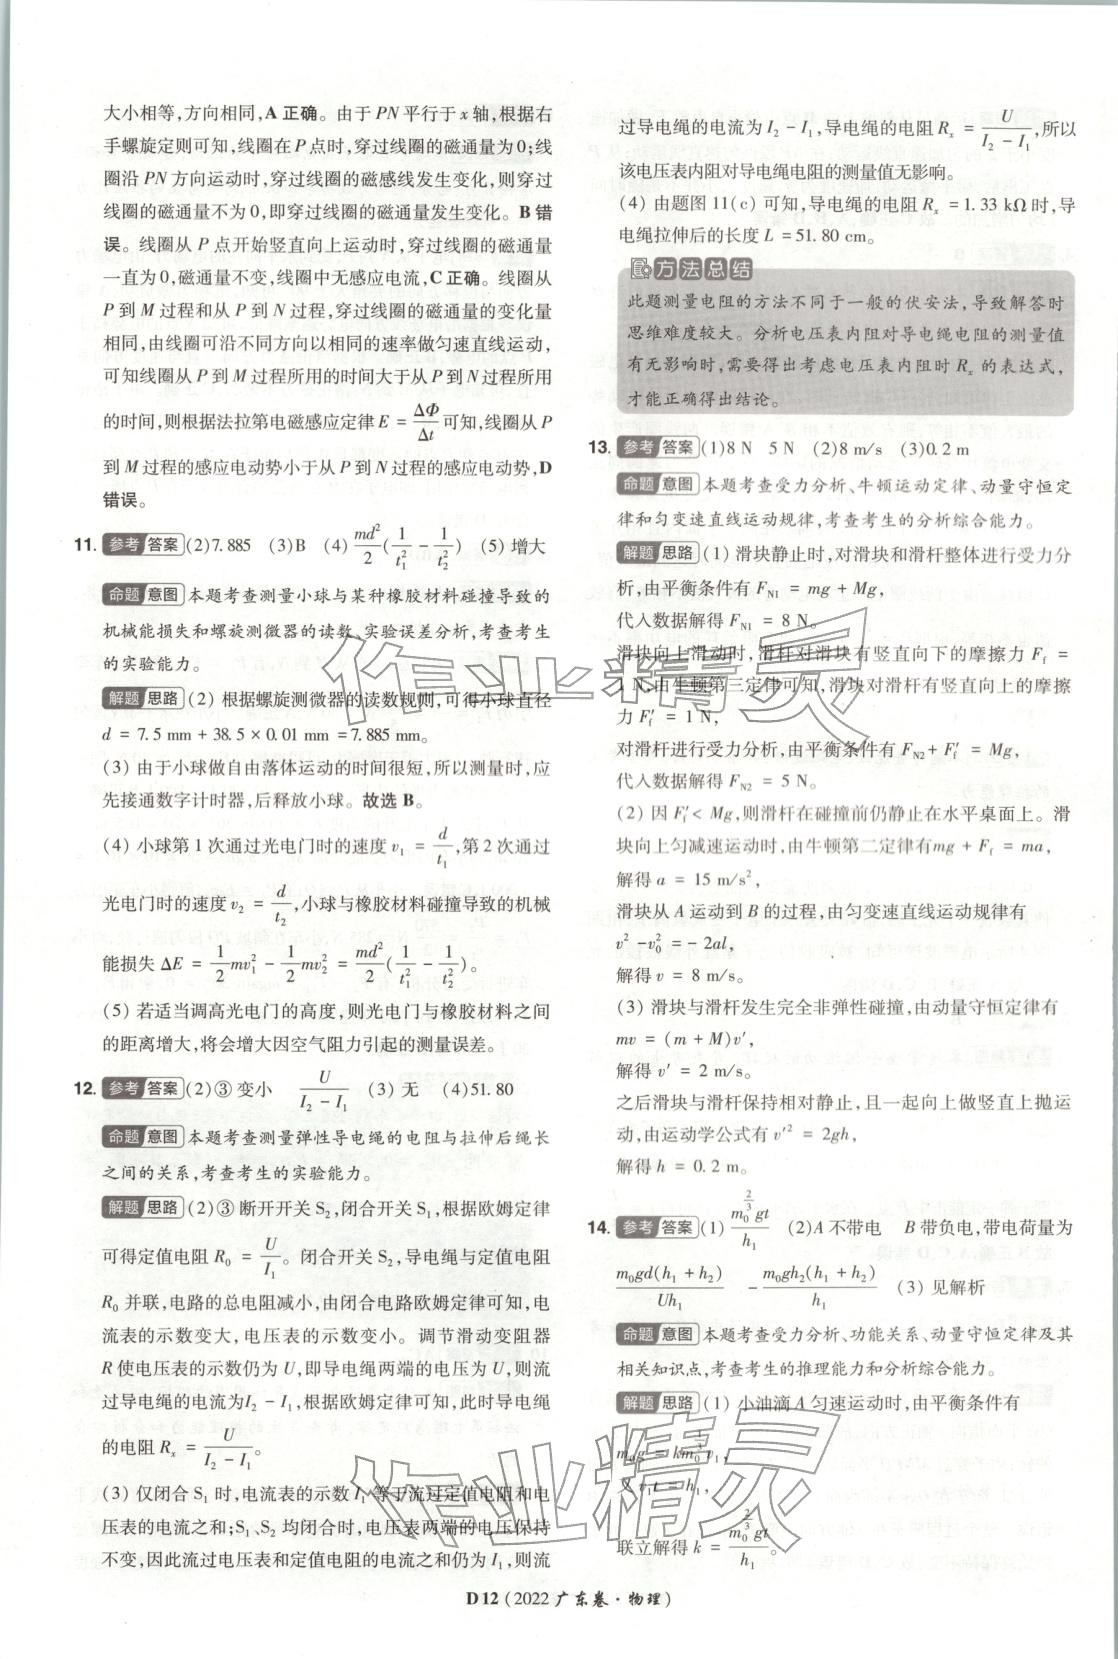 大小相等,方向相同,A 正确。由于 PN 平行于 x 轴,根据右
手螺旋定则可知,线圈在 P 点时,穿过线圈的磁通量为 0;线
圈沿 PN 方向运动时,穿过线圈的磁感线发生变化,则穿过
线圈的磁通量不为 0,即穿过线圈的磁通量发生变化。B 错
误。线圈从 P 点开始竖直向上运动时,穿过线圈的磁通量
一直为 0,磁通量不变,线圈中无感应电流,C 正确。线圈从
P 到 M 过程和从 P 到 N 过程,穿过线圈的磁通量的变化量
相同,由线圈可沿不同方向以相同的速率做匀速直线运动,
可知线圈从 P 到 M 过程所用的时间大于从 P 到 N 过程所用
的时间,则根据法拉第电磁感应定律 E = ΔΦ/Δt 可知,线圈从 P
到 M 过程的感应电动势小于从 P 到 N 过程的感应电动势,D
错误。
11. 参考答案 (2)7.885 (3)B (4) md²/2 (1/t₁² − 1/t₂²) (5) 增大
命题意图 本题考查测量小球与某种橡胶材料碰撞导致的
机械能损失和螺旋测微器的读数、实验误差分析,考查考生
的实验能力。
解题思路 (2) 根据螺旋测微器的读数规则,可得小球直径
d = 7.5 mm + 38.5 × 0.01 mm = 7.885 mm。
(3) 由于小球做自由落体运动的时间很短,所以测量时,应
先接通数字计时器,后释放小球。故选 B。
(4) 小球第 1 次通过光电门时的速度 v₁ = d/t₁,第 2 次通过
光电门时的速度 v₂ = d/t₂,小球与橡胶材料碰撞导致的机械
能损失 ΔE = 1/2 mv₁² − 1/2 mv₂² = md²/2 (1/t₁² − 1/t₂²)。
(5) 若适当调高光电门的高度,则光电门与橡胶材料之间
的距离增大,将会增大因空气阻力引起的测量误差。
12. 参考答案 (2)③ 变小 U/(I₂ − I₁) (3) 无 (4)51.80
命题意图 本题考查测量弹性导电绳的电阻与拉伸后绳长
之间的关系,考查考生的实验能力。
解题思路 (2)③ 断开开关 S₂,闭合开关 S₁,根据欧姆定律
可得定值电阻 R₀ = U/I₁。闭合开关 S₂,导电绳与定值电阻
R₀ 并联,电路的总电阻减小,由闭合电路欧姆定律可知,电
流表的示数变大,电压表的示数变小。调节滑动变阻器
R 使电压表的示数仍为 U,即导电绳两端的电压为 U,则流
过导电绳的电流为 I₂ − I₁,根据欧姆定律可知,此时导电绳
的电阻 Rₓ = U/(I₂ − I₁)。
(3) 仅闭合 S₁ 时,电流表的示数 I₁ 等于流过定值电阻和电
压表的电流之和;S₁、S₂ 均闭合时,电压表两端的电压保持
不变,因此流过电压表和定值电阻的电流之和仍为 I₁,则流
过导电绳的电流为 I₂ − I₁,导电绳的电阻 Rₓ = U/(I₂ − I₁),所以
该电压表内阻对导电绳电阻的测量值无影响。
(4) 由题图 11(c) 可知,导电绳的电阻 Rₓ = 1.33 kΩ 时,导
电绳拉伸后的长度 L = 51.80 cm。
方法总结
此题测量电阻的方法不同于一般的伏安法,导致解答时
思维难度较大。分析电压表内阻对导电绳电阻的测量值
有无影响时,需要得出考虑电压表内阻时 Rₓ 的表达式,
才能正确得出结论。
13. 参考答案 (1)8 N 5 N (2)8 m/s (3)0.2 m
命题意图 本题考查受力分析、牛顿运动定律、动量守恒定
律和匀变速直线运动规律,考查考生的分析综合能力。
解题思路 (1) 滑块静止时,对滑块和滑杆整体进行受力分
析,由平衡条件有 F_N1 = mg + Mg,
代入数据解得 F_N1 = 8 N。
滑块向上滑动时,滑杆对滑块有竖直向下的摩擦力 F_f =
1 N,由牛顿第三定律可知,滑块对滑杆有竖直向上的摩擦
力 F′_f = 1 N,
对滑杆进行受力分析,由平衡条件有 F_N2 + F′_f = Mg,
代入数据解得 F_N2 = 5 N。
(2) 因 F′_f < Mg,则滑杆在碰撞前仍静止在水平桌面上。滑
块向上匀减速运动时,由牛顿第二定律有 mg + F_f = ma,
解得 a = 15 m/s²,
滑块从 A 运动到 B 的过程,由匀变速直线运动规律有
v² − v₀² = − 2al,
解得 v = 8 m/s。
(3) 滑块与滑杆发生完全非弹性碰撞,由动量守恒定律有
mv = (m + M)v′,
解得 v′ = 2 m/s。
之后滑块与滑杆保持相对静止,且一起向上做竖直上抛运
动,由运动学公式有 v′² = 2gh,
解得 h = 0.2 m。
14. 参考答案 (1) m₀^(2/3) gt/h₁ (2)A 不带电 B 带负电,带电荷量为
m₀gd(h₁ + h₂)/(Uh₁) − m₀gh₂(h₁ + h₂)/h₁ (3) 见解析
命题意图 本题考查受力分析、功能关系、动量守恒定律及其
相关知识点,考查考生的推理能力和分析综合能力。
解题思路 (1) 小油滴 A 匀速运动时,由平衡条件有
m₀g = km₀^(1/3) v₁,
又 v₁t = h₁,
联立解得 k = m₀^(2/3) gt/h₁。
D12 (2022 广东卷·物理)
作业精灵
作业精灵